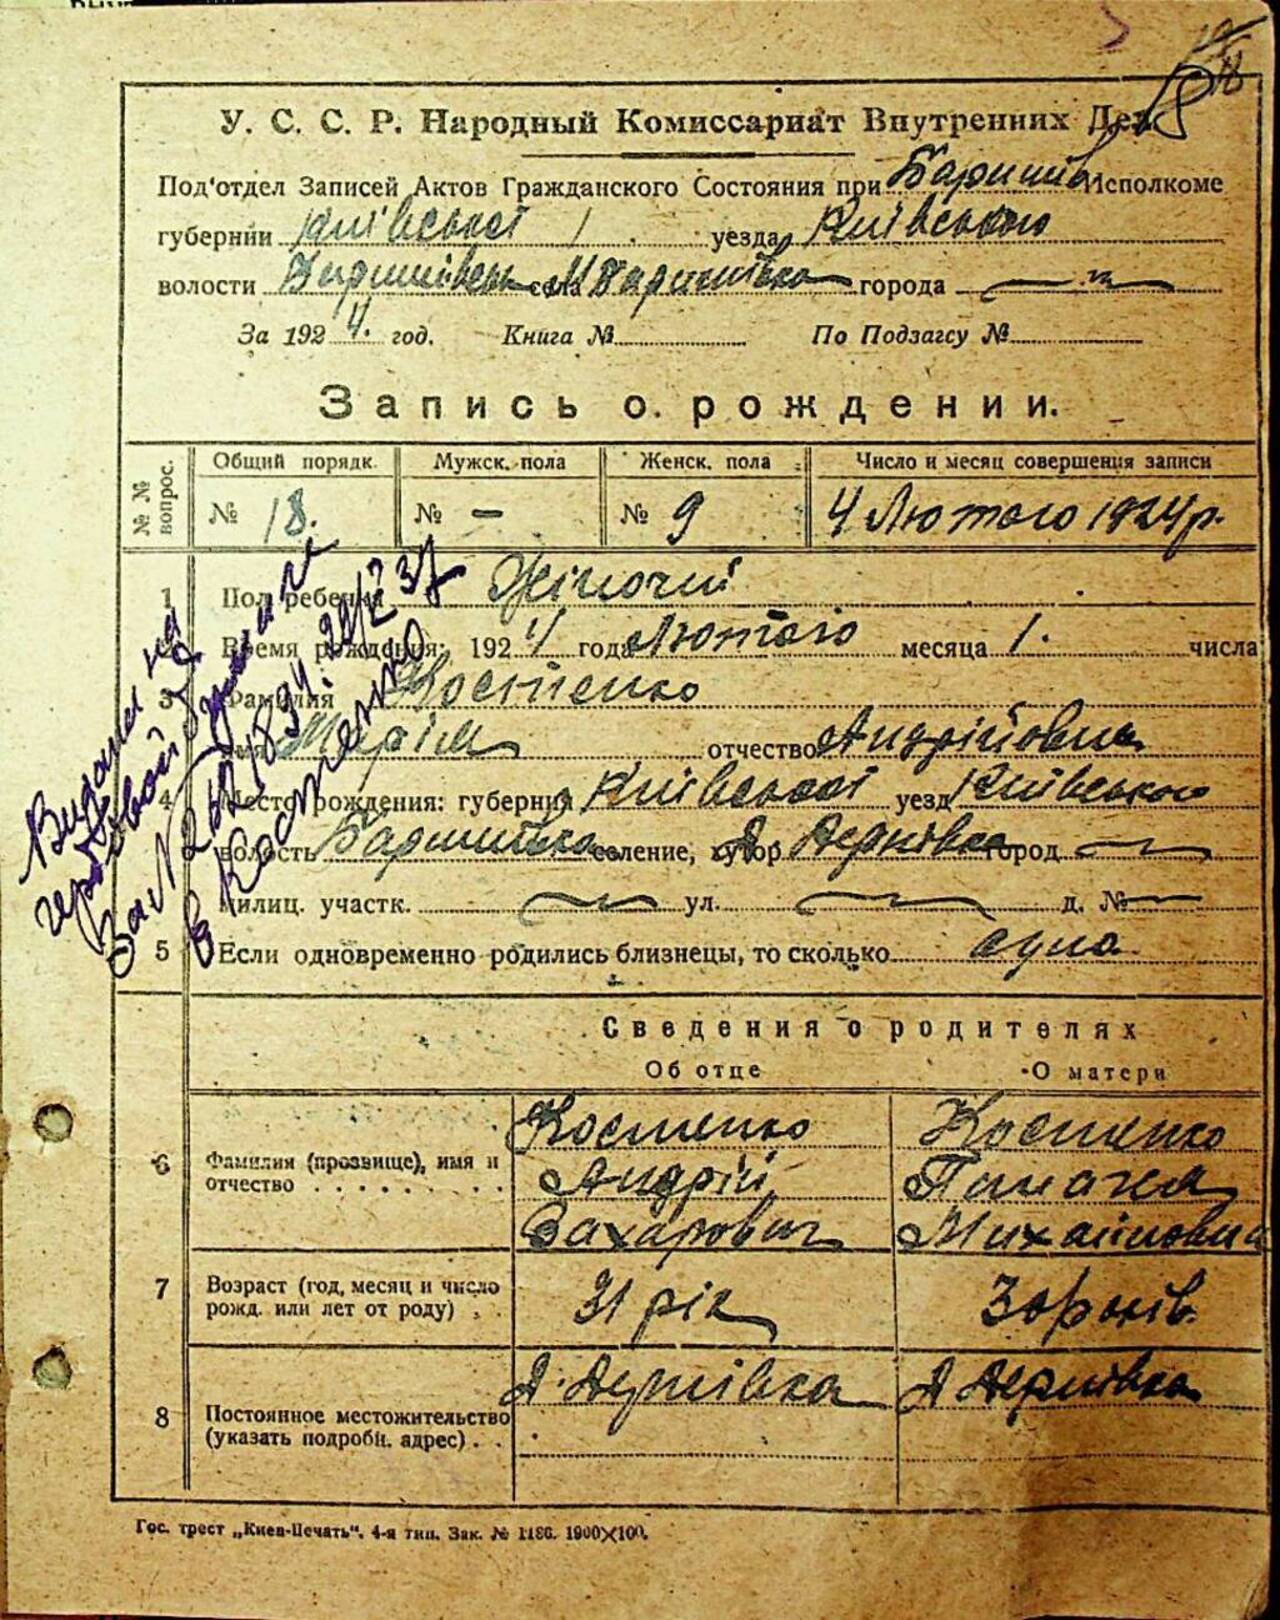 У. С. С. Р. Народный Комиссариат Внутренних Дел
18
Под'отдел Записей Актов Гражданского Состояния при Баришів. Исполкоме
губернии Київської уезда Київського
волости села М Баришівка города
За 1924. год. Книга № По Подзагсу №
Запись о рождении.
№ № вопрос.
Общий порядк. Мужск. пола Женск. пола Число и месяц совершения записи
№ 18. № — № 9 4 Лютого 1924 р.
1 Пол ребенка Жіночий
Время рождения: 1924 года Лютого месяца 1. числа
3 Фамилия Костенко
имя Марія отчество Андріївна
4 Место рождения: губерния Київської уезд Київського
волость Баришівка селение, хутор Д. Дернівка город
милиц. участк. ул. д. №
5 Если одновременно родились близнецы, то сколько одна
Сведения о родителях
Об отце О матери
Костенко Костенко
6 Фамилия (прозвище), имя и отчество Андрій
Захарович Михайловна
7 Возраст (год, месяц и число рожд. или лет от роду) 31 рік 30 років.
8 Постоянное местожительство (указать подробн. адрес) Д. Дернівка Д Дернівка
Гос. трест „Киев-Печать". 4-я тип. Зак. № 1186. 1900×100.